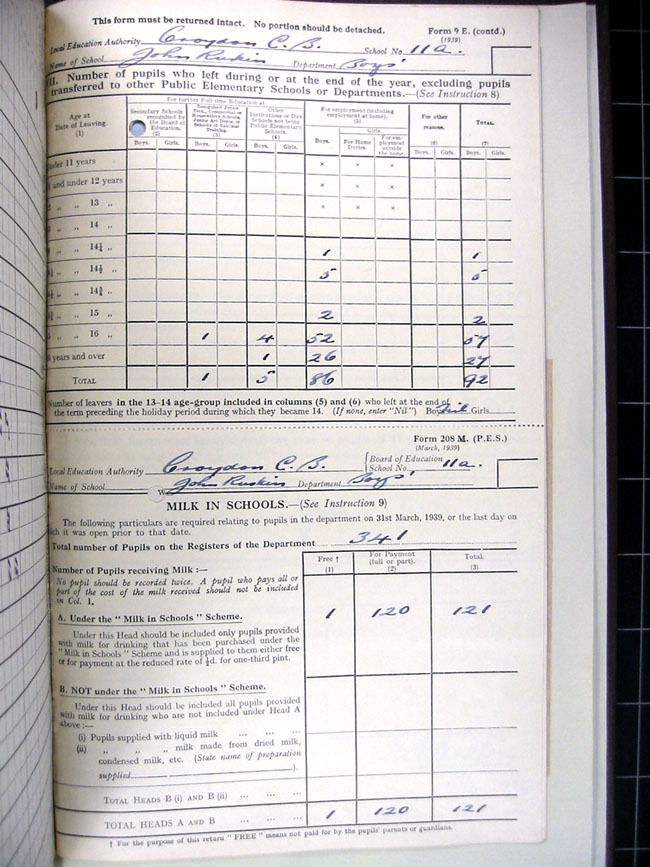 This form must be returned intact. No portion should be detached.
Form 9 E. (contd.)
(1939)
Local Education Authority Croydon C. B. School No. 11a.
Name of School John Ruskin Department Boys'
VII. Number of pupils who left during or at the end of the year, excluding pupils
transferred to other Public Elementary Schools or Departments.—(See Instruction 8)
Age at Date of Leaving. (1)
For further Full-time Education at
Secondary Schools recognised by the Board of Education. (2)
Recognised Junior Tech., Commercial or Housewifery Schools, Junior Art Depts. or Schools of Nautical Training. (3)
Other Institutions or Day Schools not being Public Elementary Schools. (4)
For employment (including employment at home). (5)
For other reasons. (6)
Total. (7)
Girls.
Boys. Girls. Boys. Girls. Boys. Girls. Boys. For Home Duties. For employment outside the home. Boys. Girls. Boys. Girls.
Under 11 years × × ×
and under 12 years × × ×
„ „ 13 „ × × ×
„ „ 14 „
„ „ 14¼ „ 1 1
„ „ 14½ „ 5 5
„ „ 14¾ „
„ „ 15 „ 2 2
„ „ 16 „ 1 4 52 57
years and over 1 26 27
Total 1 5 86 92
Number of leavers in the 13–14 age-group included in columns (5) and (6) who left at the end of
the term preceding the holiday period during which they became 14. (If none, enter "Nil") Boys nil Girls
Form 208 M. (P.E.S.)
(March, 1939)
Local Education Authority Croydon C. B. Board of Education School No. 11a.
Name of School John Ruskin Department Boys'
MILK IN SCHOOLS.—(See Instruction 9)
The following particulars are required relating to pupils in the department on 31st March, 1939, or the last day on
which it was open prior to that date.
Total number of Pupils on the Registers of the Department 341
Free † (1) For Payment (full or part). (2) Total. (3)
Number of Pupils receiving Milk :—
No pupil should be recorded twice. A pupil who pays all or
part of the cost of the milk received should not be included
in Col. 1.
A. Under the "Milk in Schools" Scheme. 1 120 121
Under this Head should be included only pupils provided
with milk for drinking that has been purchased under the
"Milk in Schools" Scheme and is supplied to them either free
or for payment at the reduced rate of ½d. for one-third pint.
B. NOT under the "Milk in Schools" Scheme.
Under this Head should be included all pupils provided
with milk for drinking who are not included under Head A
above :—
(i) Pupils supplied with liquid milk ... ... ...
(ii) „ „ „ milk made from dried milk,
condensed milk, etc. (State name of preparation
supplied ).
Total Heads B (i) and B (ii) ... ... ...
Total Heads A and B ... ... ... 1 120 121
† For the purpose of this return "FREE" means not paid for by the pupils' parents or guardians.